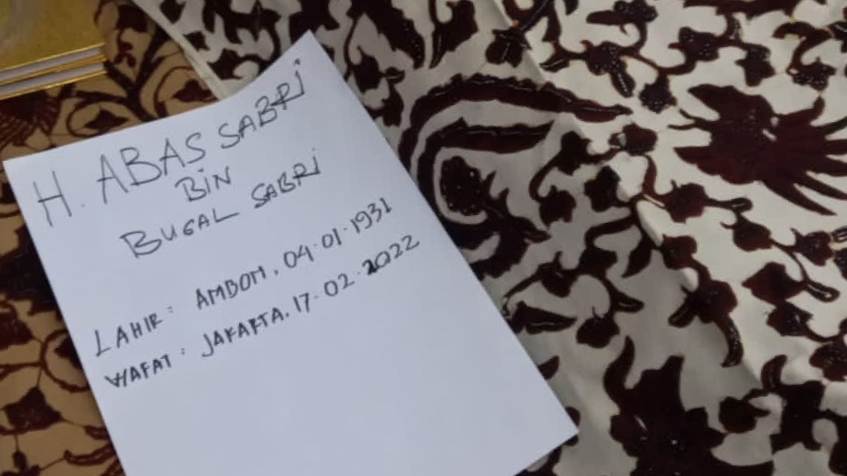 H. ABAS SABRI
BIN
BUGAL SABRI
LAHIR: AMBON, 04.01.1931
WAFAT: JAKARTA. 17.02.2022